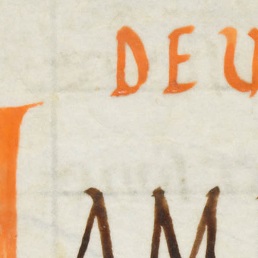 DEU
IAM